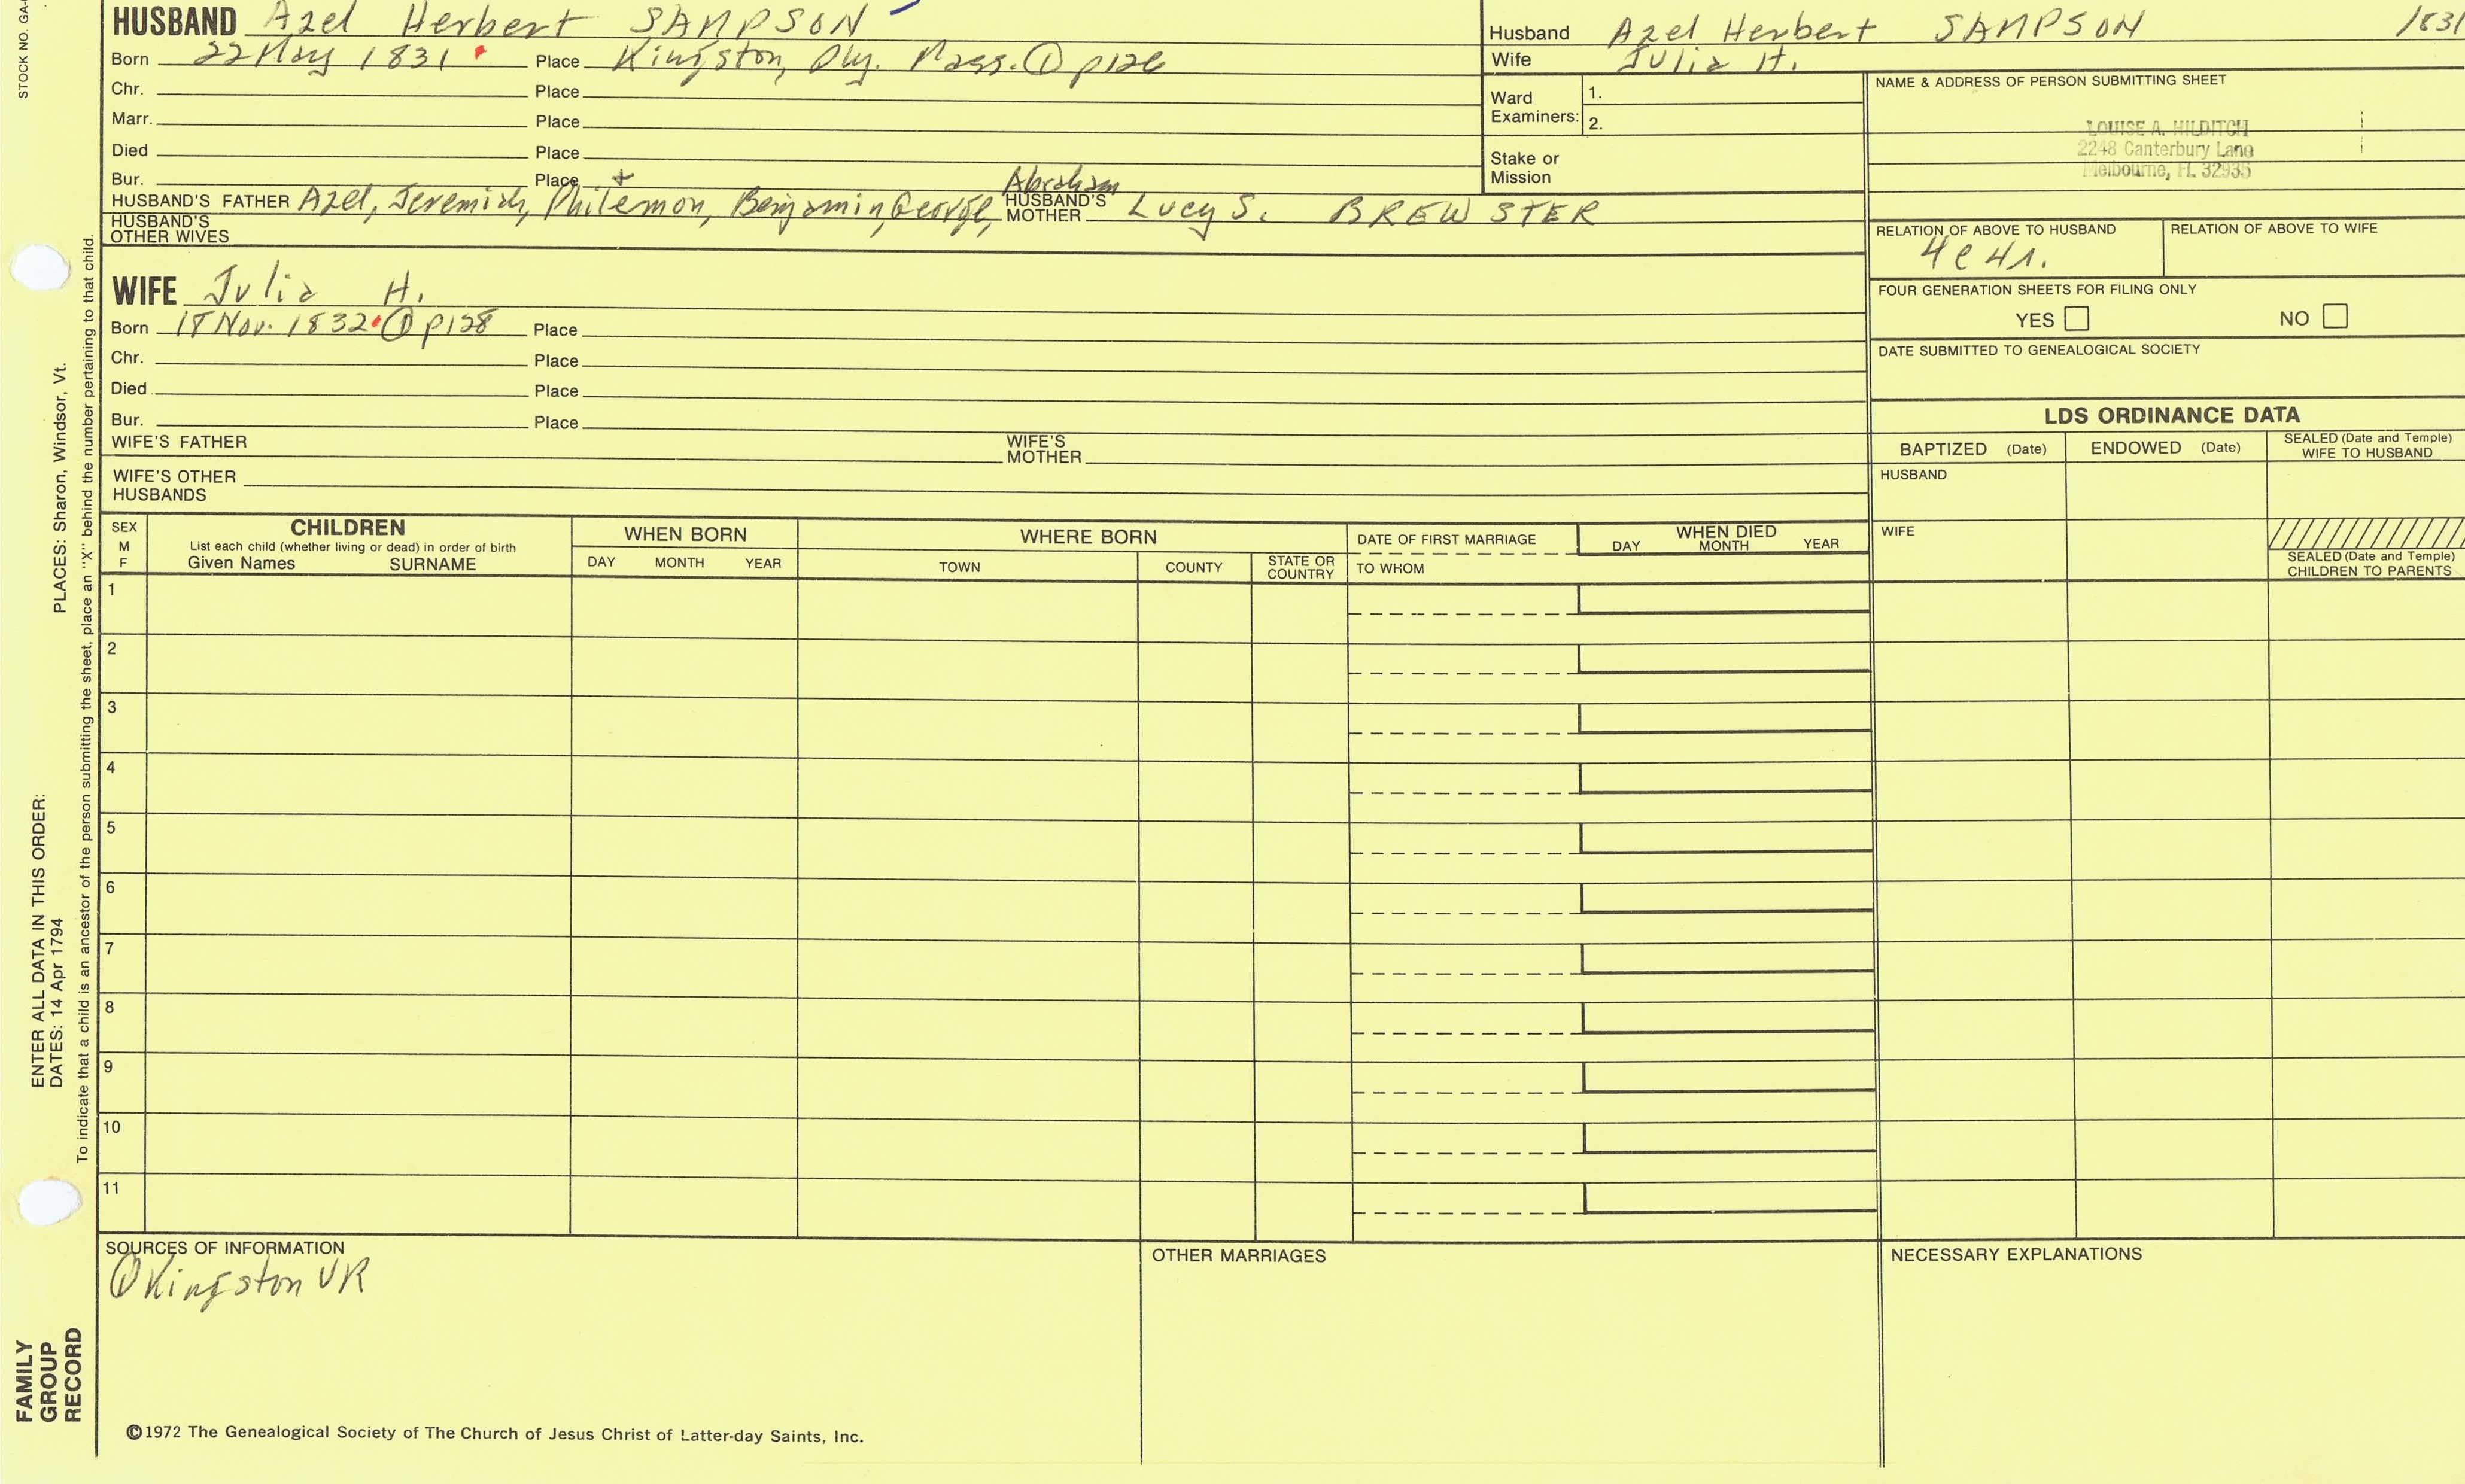 STOCK NO. GA-
HUSBAND Azel Herbert SAMPSON
Born 22 May 1831 Place Kingston, Ply. Mass. ① p126
Chr. Place
Marr. Place
Died Place
Bur. Place
HUSBAND'S FATHER Azel, Jeremiah, Philemon, Benjamin, George, Abraham HUSBAND'S MOTHER Lucy S. BREWSTER
HUSBAND'S OTHER WIVES
WIFE Julia H.
Born 18 Nov. 1832 ① p128 Place
Chr. Place
Died Place
Bur. Place
WIFE'S FATHER WIFE'S MOTHER
WIFE'S OTHER HUSBANDS
Husband Azel Herbert SAMPSON 1831
Wife Julia H.
Ward Examiners: 1.
2.
Stake or Mission
NAME & ADDRESS OF PERSON SUBMITTING SHEET
LOUISE A. HILDITCH
2248 Canterbury Lane
Melbourne, Fl. 32935
RELATION OF ABOVE TO HUSBAND RELATION OF ABOVE TO WIFE
4c4r.
FOUR GENERATION SHEETS FOR FILING ONLY
YES NO
DATE SUBMITTED TO GENEALOGICAL SOCIETY
LDS ORDINANCE DATA
BAPTIZED (Date) ENDOWED (Date) SEALED (Date and Temple) WIFE TO HUSBAND
HUSBAND
WIFE
SEALED (Date and Temple) CHILDREN TO PARENTS
SEX M F
CHILDREN
List each child (whether living or dead) in order of birth
Given Names SURNAME
WHEN BORN
DAY MONTH YEAR
WHERE BORN
TOWN COUNTY STATE OR COUNTRY
DATE OF FIRST MARRIAGE
TO WHOM
WHEN DIED
DAY MONTH YEAR
1
2
3
4
5
6
7
8
9
10
11
SOURCES OF INFORMATION
① Kingston VR
OTHER MARRIAGES
NECESSARY EXPLANATIONS
©1972 The Genealogical Society of The Church of Jesus Christ of Latter-day Saints, Inc.
FAMILY
GROUP
RECORD
ENTER ALL DATA IN THIS ORDER:
DATES: 14 Apr 1794 PLACES: Sharon, Windsor, Vt.
To indicate that a child is an ancestor of the person submitting the sheet, place an "X" behind the number pertaining to that child.